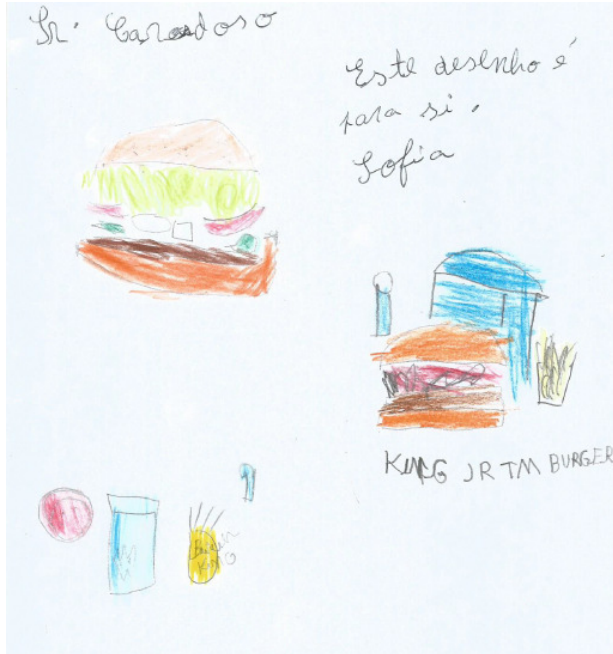 Sr. Carodoso
Este desenho é
para si.
Sofia
KING JR TM BURGER
KING